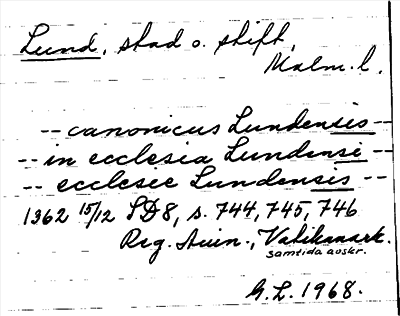 Lund, stad o. stift,
Malm. l.
-- canonicus Lundensis --
-- in ecclesia Lundensi --
-- ecclesie Lundensis --
1362 15/12 SD8, s. 744, 745, 746
Reg. Avin., Vatikanark.
samtida avskr.
G. L. 1968.